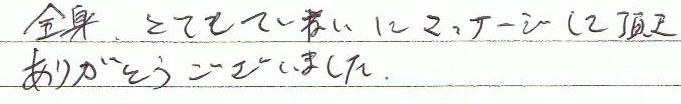 全身、とてもていねいにマッサージして頂き
ありがとうございました。